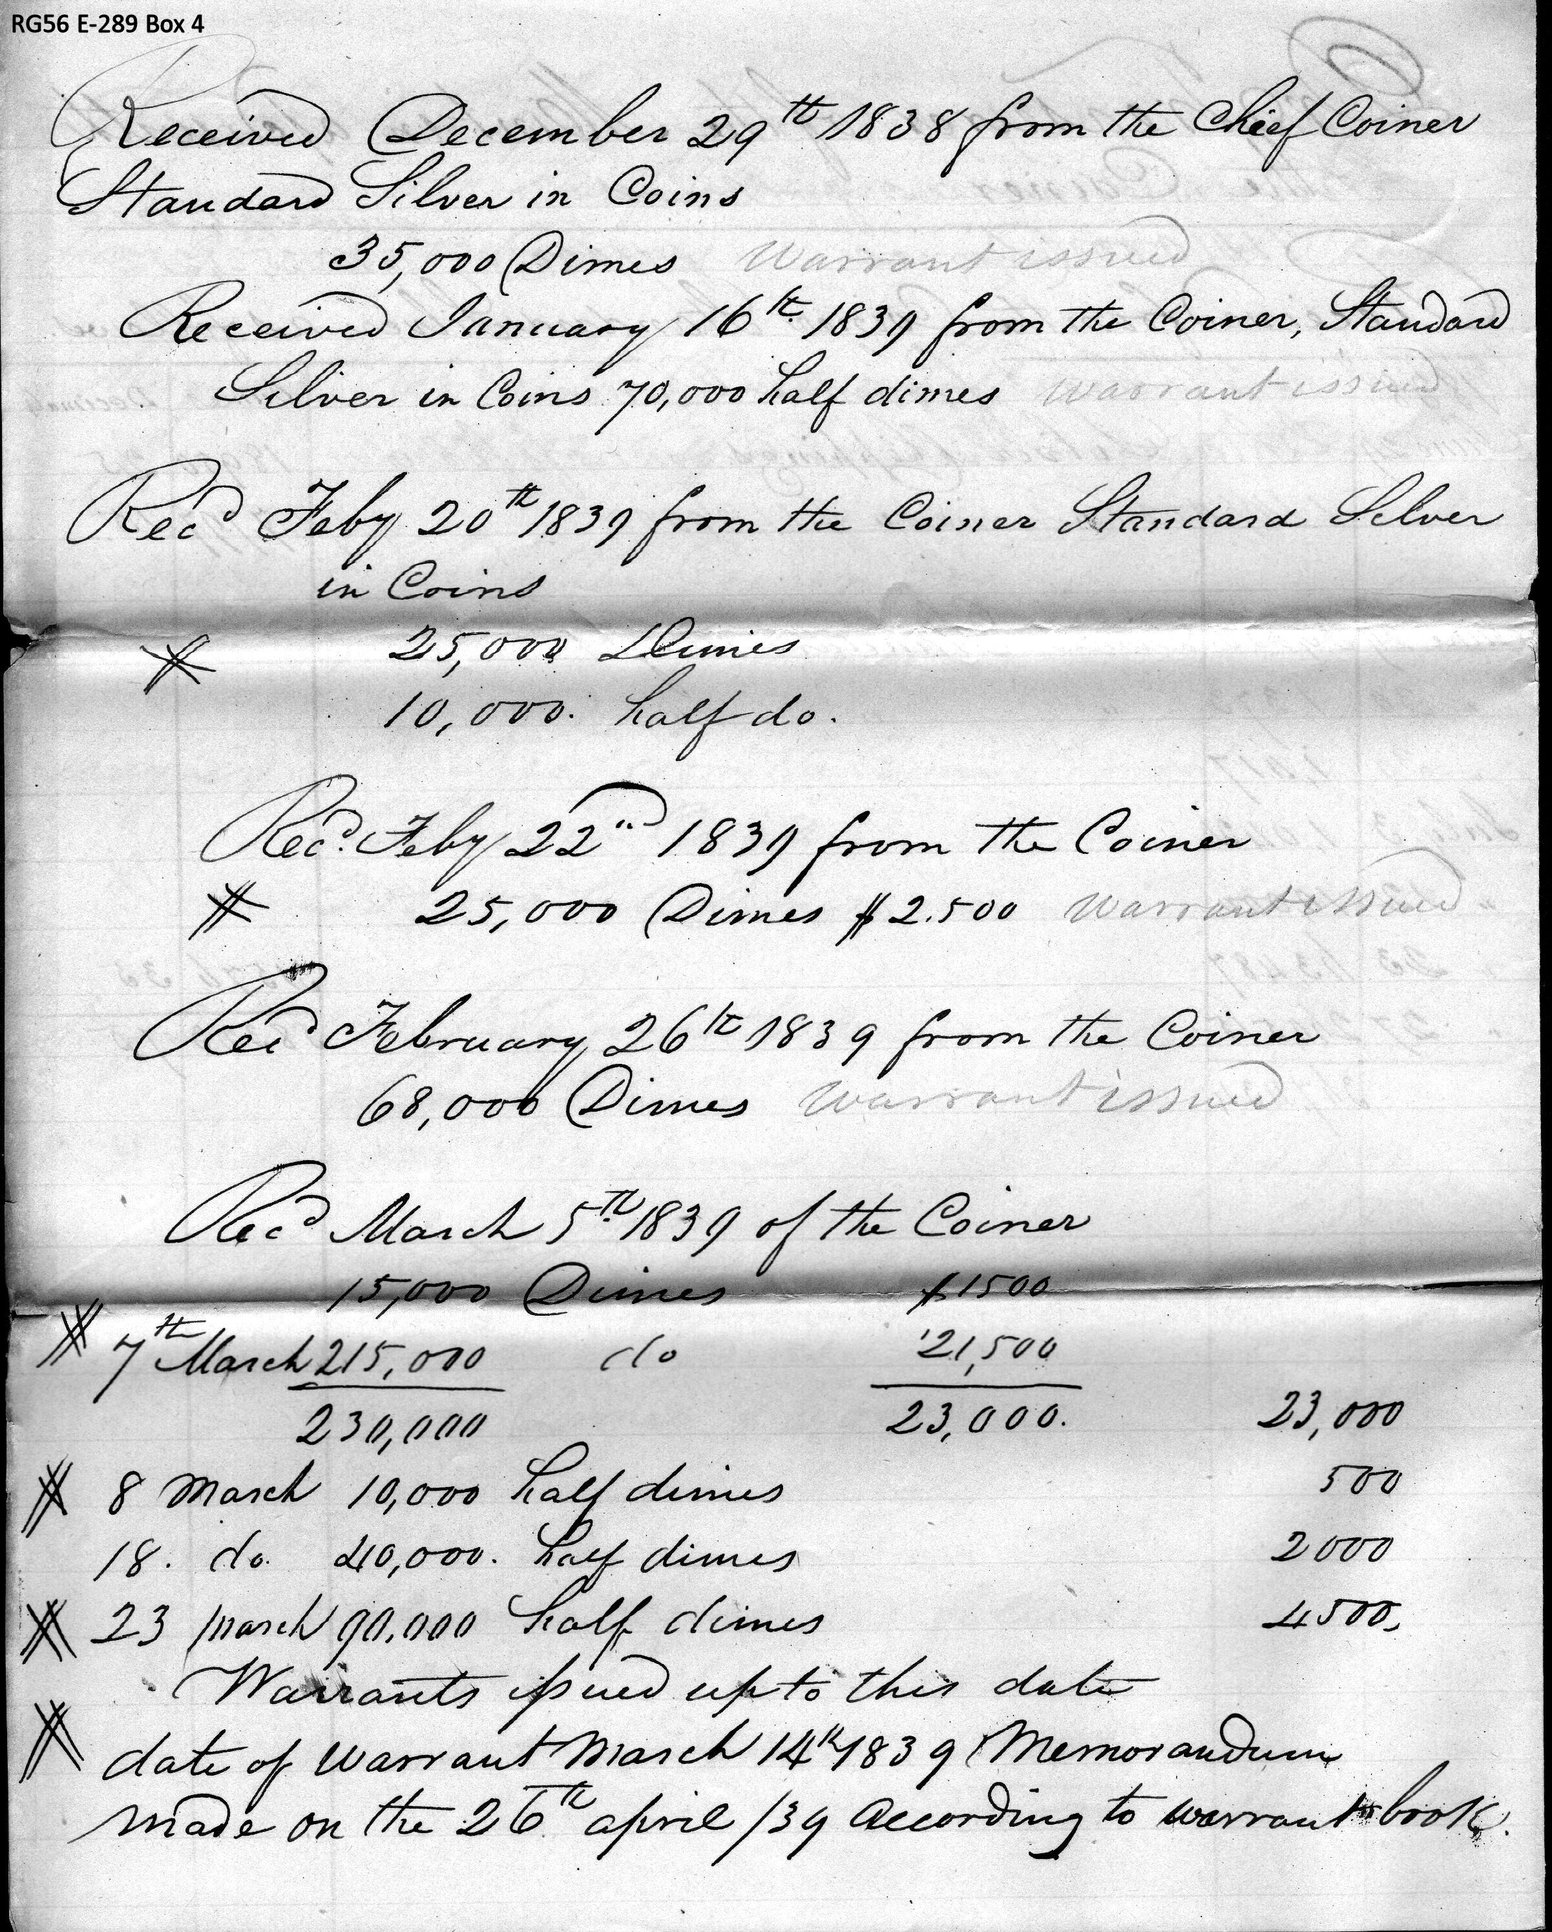 RG56 E-289 Box 4
Received December 29th 1838 from the Chief Coiner
Standard Silver in Coins
35,000 Dimes Warrant issued
Received January 16th 1839 from the Coiner, Standard
Silver in Coins 70,000 half dimes Warrant issued
Recd Feby 20th 1839 from the Coiner Standard Silver
in Coins
25,000 Dimes
10,000. half do.
Recd. Feby 22nd 1839 from the Coiner
25,000 Dimes $2.500 Warrant issued
Recd February 26th 1839 from the Coiner
68,000 Dimes Warrant issued
Recd March 5th 1839 of the Coiner
15,000 Dimes $1500
7th March 215,000 do 21,500
230,000 23,000. 23,000
8 March 10,000 half dimes 500
18. do. 40,000. half dimes 2000
23 March 90.000 half dimes 4500,
Warrants issued up to this date
date of Warrant March 14th 1839 Memorandum
made on the 26th april /39 According to warrant book.